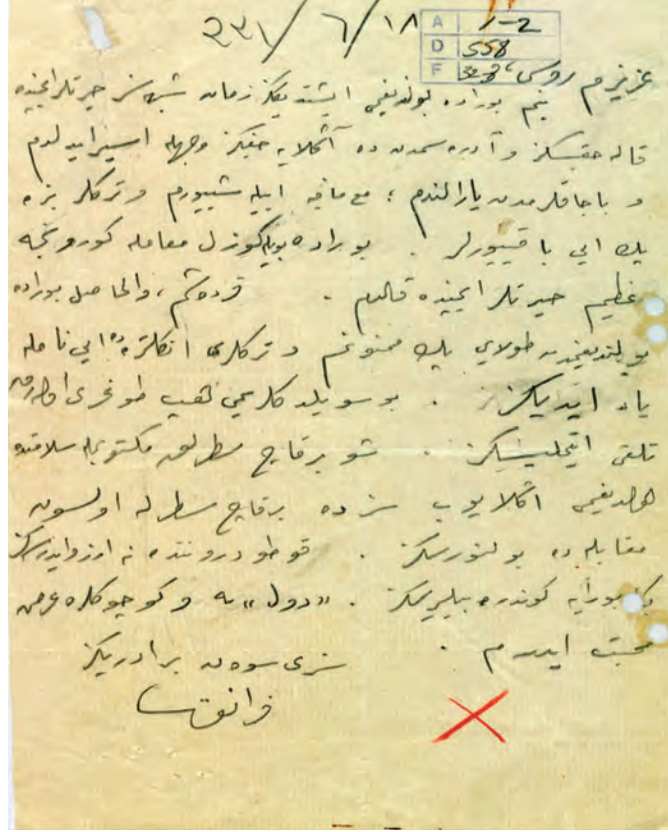 ٣٣١/٦/١٨
A 1-2
D 558
F
عزيزم روسى
بنم بوراده بولنديغمى ايشتديككز زمان شبهه سز حيرتلر ايچنده
قاله جقسكز و آدره سمدن ده آكلايه جغكز وجهله اسير ايدلدم
و باجاقلرمدن يارالندم ؛ مع مافيه اييله شييورم و تركلر بزه
پك ايى باقييورلر . بوراده بويله كوزل معامله كورونجه
عظيم حيرتلر ايچنده قالدم . والحاصل بوراده
بولنديغمدن طولايى پك ممنونم و تركلرى انكلتره ده ايى نامله
ياد ايديكز . بو سويلدكلريمى هپ طوغرى اوله رق
تلقى ايتمليسكز . شو برقاچ سطرلق مكتوبمله سلامتده
اولديغمى اكلايوب سز ده برقاچ سطرله اولسون
مقابله ده بولنورسكز . قوطو دروننده نه آرزو ايدرسكز
بكا بورايه كوندره بيليرسكز . «دول» ه و كوچوكلره عرض
محبت ايدرم .
سزى سوه ن برادريكز
فرانق